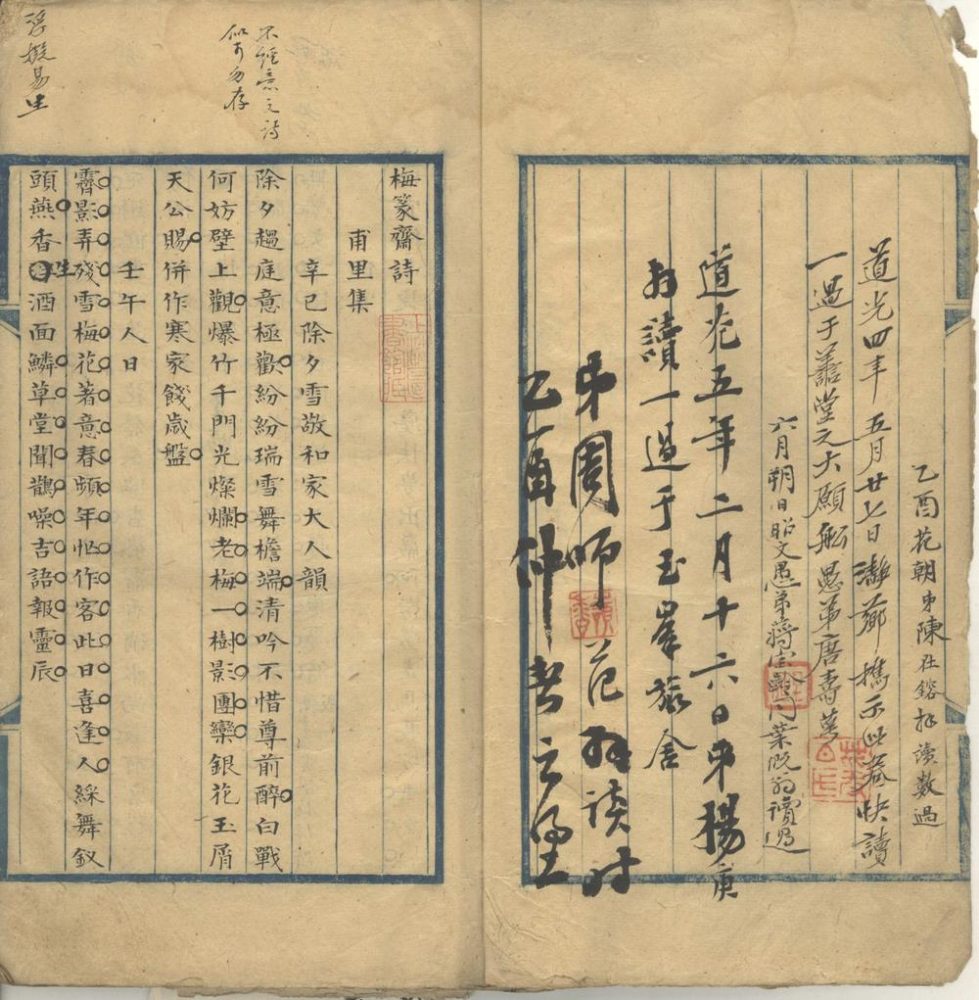 乙酉花朝弟陳在鎔拜讀數過
道光四年五月廿七日瀞薌攜示此卷快讀
一過于藹堂之大願船愚弟唐壽萼
六月朔日昭文愚弟蔣寶齡同葉氏翁讀過
道光五年二月十六日弟楊庚
拜讀一過于玉峯旅舍
弟周師范拜讀時
乙酉仲春之望
梅篆齋詩
甫里集
辛巳除夕雪敬和家大人韻
除夕趨庭意極歡紛紛瑞雪舞檐端清吟不惜尊前醉白戰
何妨壁上觀爆竹千門光燦爛老梅一樹影團欒銀花玉屑
天公賜併作寒家餞歲盤
壬午人日
霽影弄殘雪梅花著意春頻年怕作客此日喜逢人綵舞釵
頭燕香生酒面鱗草堂聞鵲噪吉語報靈辰
不經意之詩
似可勿存
浮擬易生